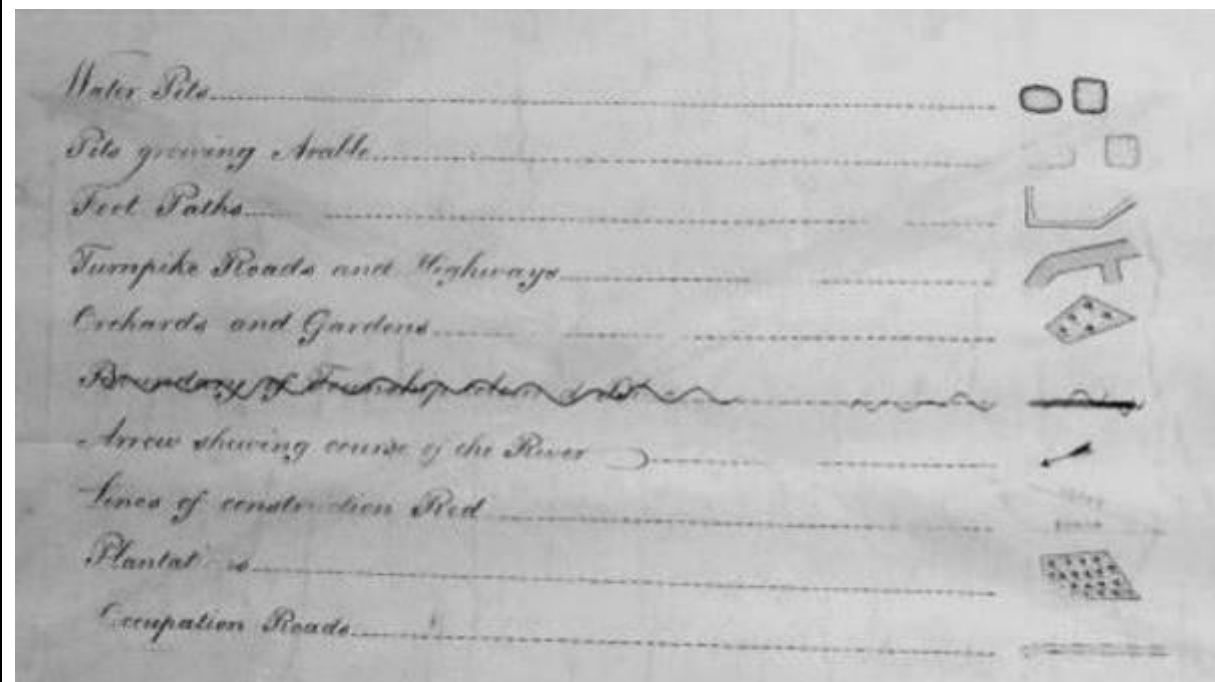 Water Pits
Pits growing Arable
Foot Paths
Turnpike Roads and Highways
Orchards and Gardens
Boundary of Township
Arrow shewing course of the River
Lines of construction Red
Plantations
Occupation Roads